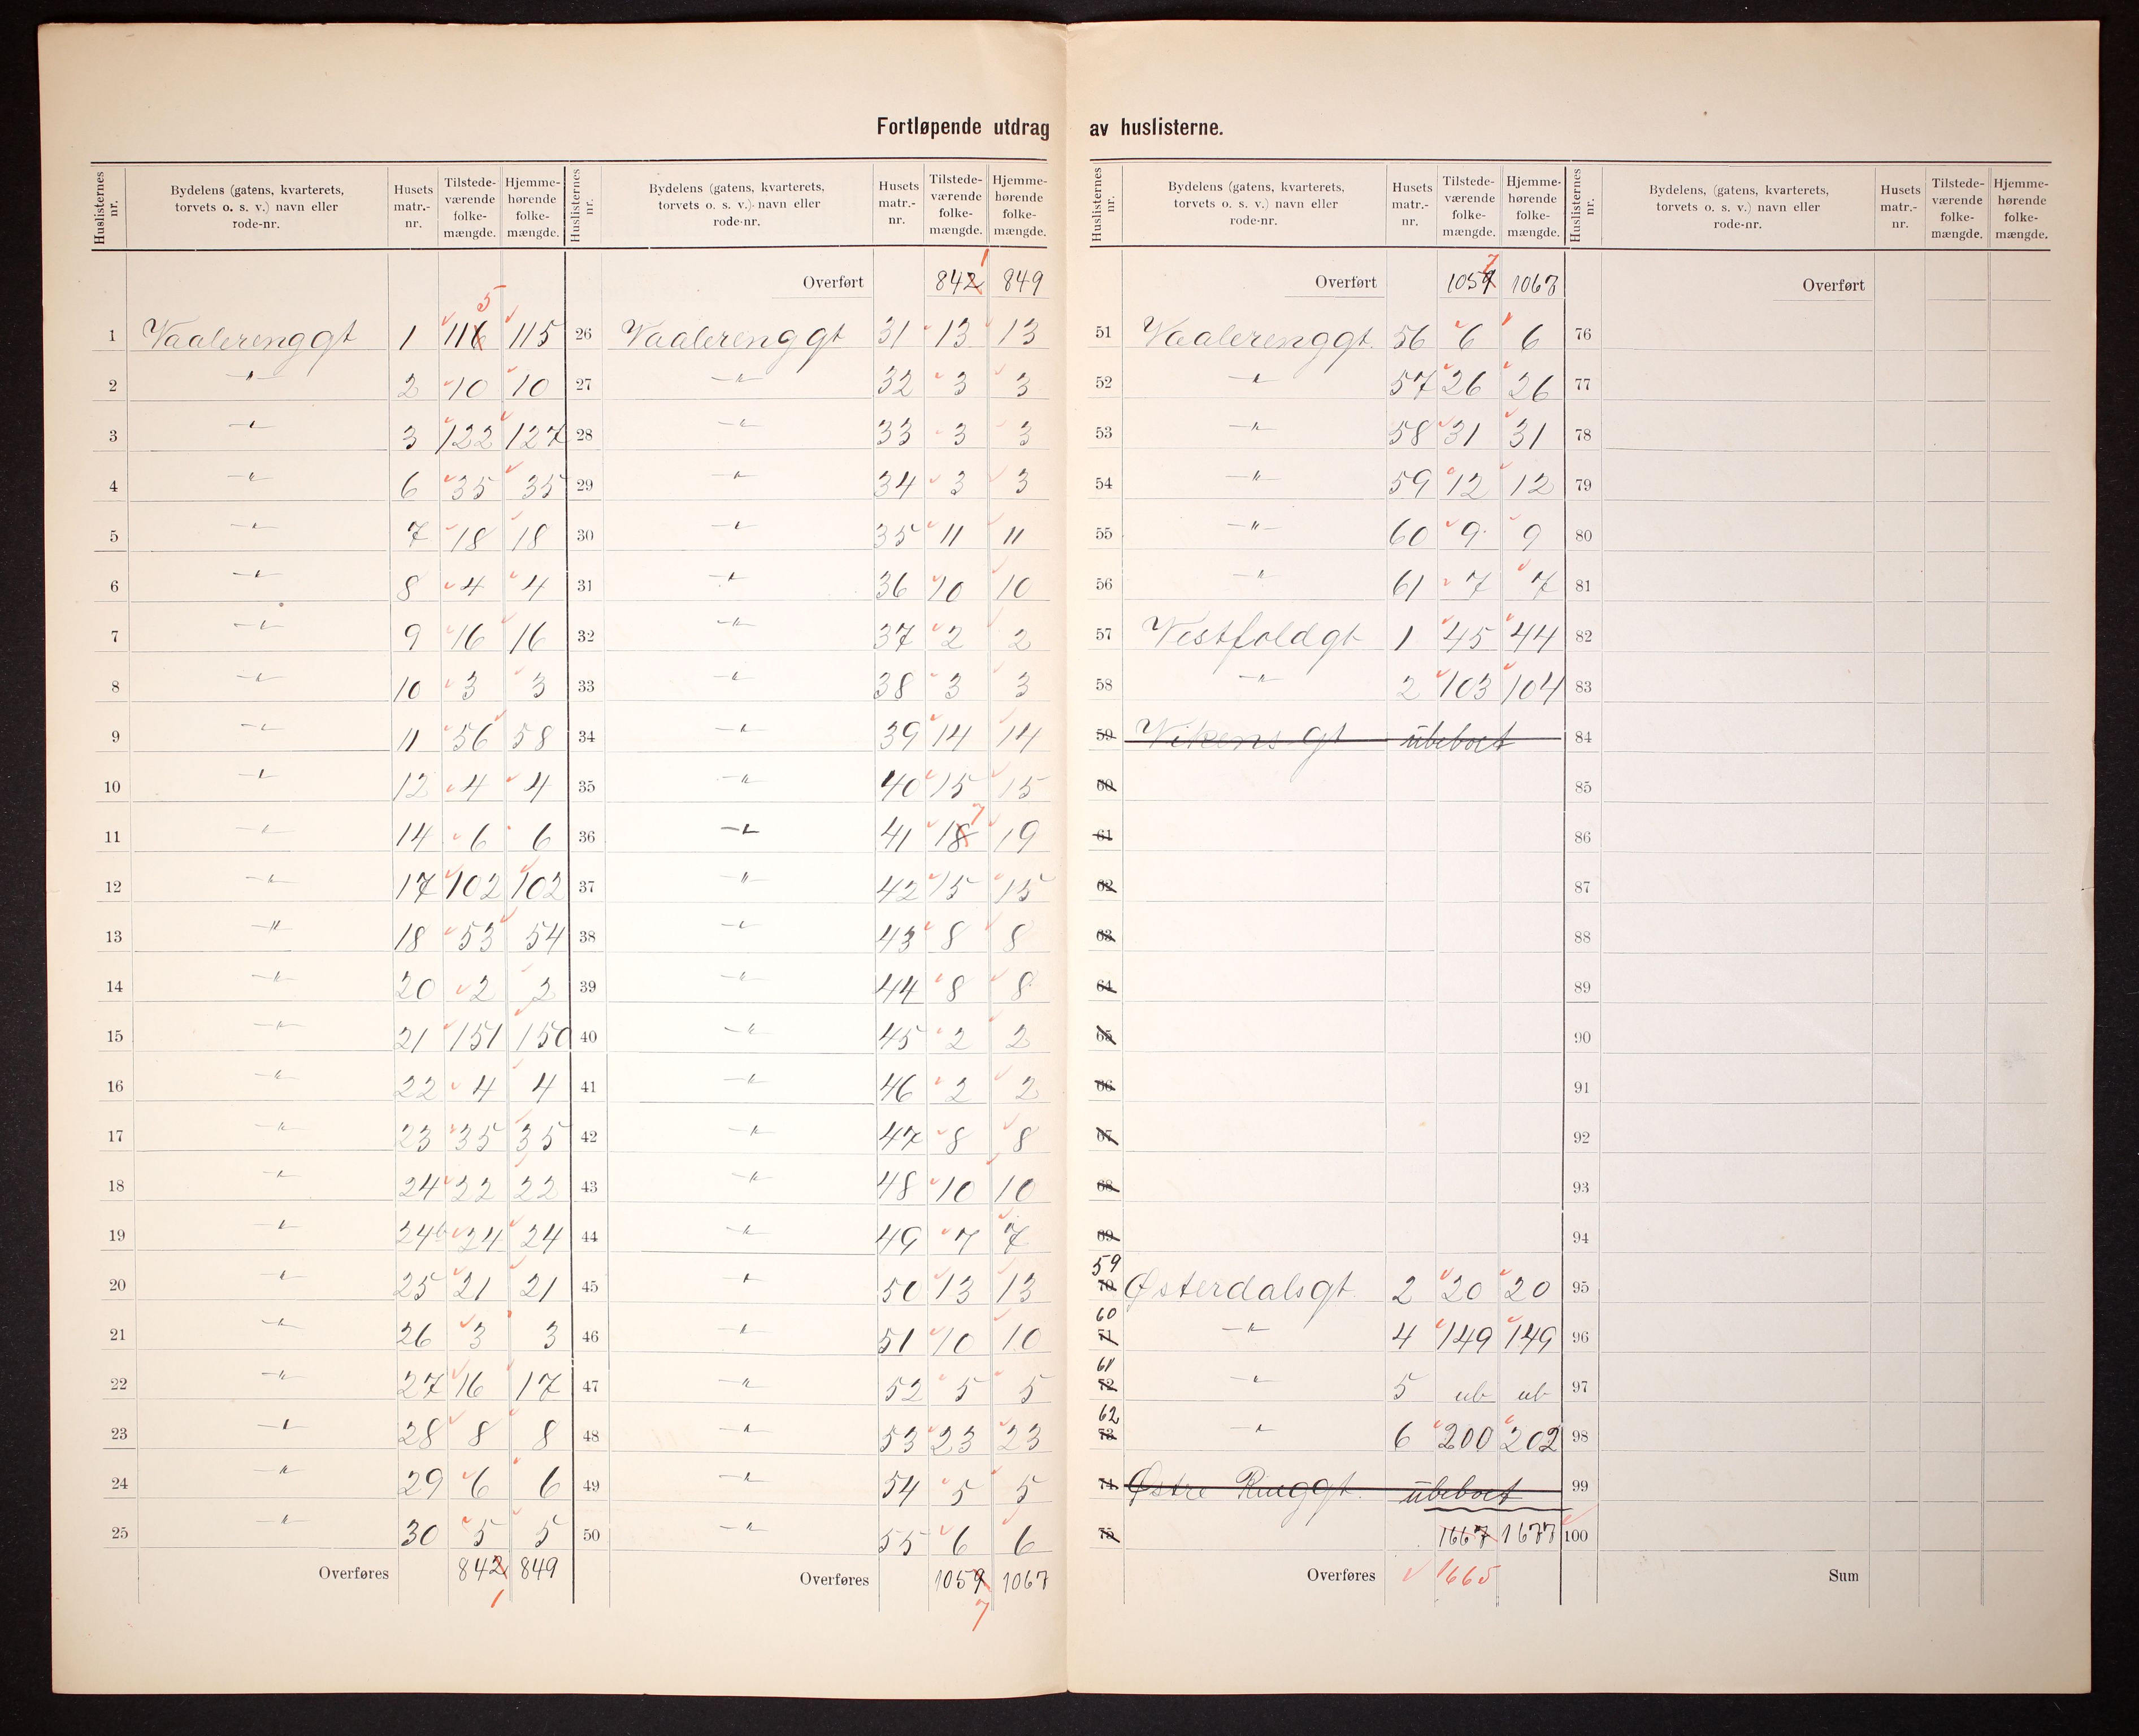 Fortløpende utdrag av huslisterne.
Huslisternes nr. Bydelens (gatens, kvarterets, torvets o. s. v.) navn eller rode-nr. Husets matr.-nr. Tilstedeværende folkemængde. Hjemmehørende folkemængde.
1 Vaalerenggt 1 116 5 115
2 —"— 2 10 10
3 —"— 3 122 127
4 —"— 6 35 35
5 —"— 7 18 18
6 —"— 8 4 4
7 —"— 9 16 16
8 —"— 10 3 3
9 —"— 11 56 58
10 —"— 12 4 4
11 —"— 14 6 6
12 —"— 17 102 102
13 —"— 18 53 54
14 —"— 20 2 2
15 —"— 21 151 150
16 —"— 22 4 4
17 —"— 23 35 35
18 —"— 24 22 22
19 —"— 24b 24 24
20 —"— 25 21 21
21 —"— 26 3 3
22 —"— 27 16 17
23 —"— 28 8 8
24 —"— 29 6 6
25 —"— 30 5 5
Overføres 842 1 849
Huslisternes nr. Bydelens (gatens, kvarterets, torvets o. s. v.) navn eller rode-nr. Husets matr.-nr. Tilstedeværende folkemængde. Hjemmehørende folkemængde.
Overført 842 1 849
26 Vaalerenggt 31 13 13
27 —"— 32 3 3
28 —"— 33 3 3
29 —"— 34 3 3
30 —"— 35 11 11
31 —"— 36 10 10
32 —"— 37 2 2
33 —"— 38 3 3
34 —"— 39 14 14
35 —"— 40 15 15
36 —"— 41 18 7 19
37 —"— 42 15 15
38 —"— 43 8 8
39 —"— 44 8 8
40 —"— 45 2 2
41 —"— 46 2 2
42 —"— 47 8 8
43 —"— 48 10 10
44 —"— 49 7 7
45 —"— 50 13 13
46 —"— 51 10 10
47 —"— 52 5 5
48 —"— 53 23 23
49 —"— 54 5 5
50 —"— 55 6 6
Overføres 1059 7 1067
Huslisternes nr. Bydelens (gatens, kvarterets, torvets o. s. v.) navn eller rode-nr. Husets matr.-nr. Tilstedeværende folkemængde. Hjemmehørende folkemængde.
Overført 1059 7 1067
51 Vaalerenggt. 56 6 6
52 —"— 57 26 26
53 —"— 58 31 31
54 —"— 59 12 12
55 —"— 60 9 9
56 —"— 61 7 7
57 Vestfoldgt 1 45 44
58 —"— 2 103 104
59 Vikens gt ubeboet
60
61
62
63
64
65
66
67
68
69
59 70 Østerdalsgt 2 20 20
60 71 —"— 4 149 149
61 72 —"— 5 ub ub
62 73 —"— 6 200 202
74 Østre Ringgt. ubeboet
75 1667 1677
Overføres 1665
Huslisternes nr. Bydelens, (gatens, kvarterets, torvets o. s. v.) navn eller rode-nr. Husets matr.-nr. Tilstedeværende folkemængde. Hjemmehørende folkemængde.
Overført
76
77
78
79
80
81
82
83
84
85
86
87
88
89
90
91
92
93
94
95
96
97
98
99
100
Sum